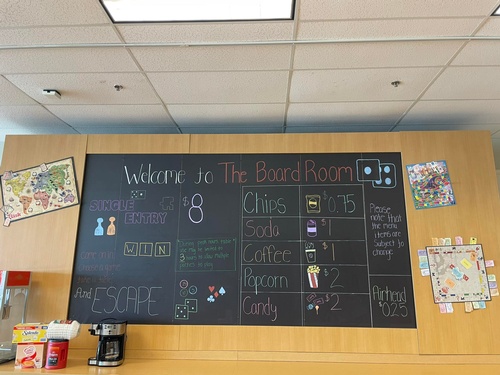 Welcome to The Board Room
SINGLE
ENTRY
$8
WIN
And ESCAPE
Chips $0.75
Soda $1
Coffee $1
Popcorn $2
Candy $2
Please
note that
the menu
items are
subject to
change
Airhead
$0.25